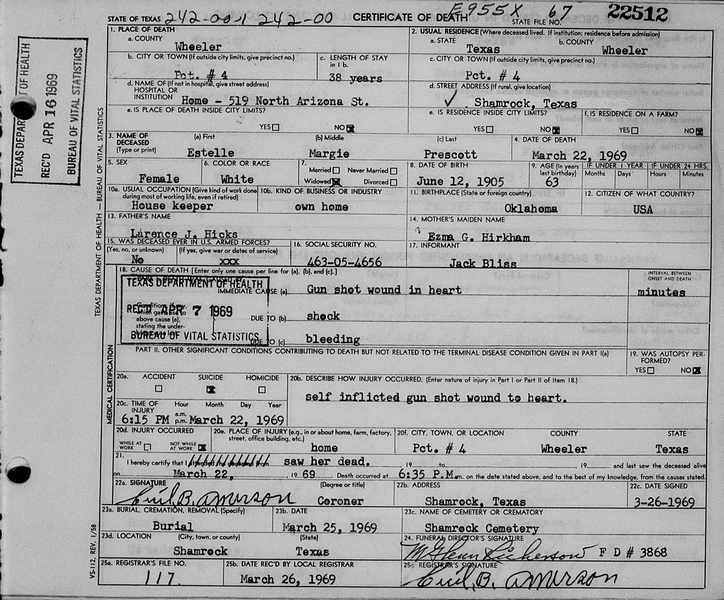 STATE OF TEXAS 242-00-1 242-00 CERTIFICATE OF DEATH E955X STATE FILE NO. 67 22512
TEXAS DEPARTMENT OF HEALTH
REC'D APR 16 1969
BUREAU OF VITAL STATISTICS
TEXAS DEPARTMENT OF HEALTH — BUREAU OF VITAL STATISTICS
1. PLACE OF DEATH
a. COUNTY
Wheeler
2. USUAL RESIDENCE (Where deceased lived. If institution: residence before admission)
a. STATE b. COUNTY
Texas Wheeler
b. CITY OR TOWN (If outside city limits, give precinct no.)
Pct. # 4
c. LENGTH OF STAY
in 1 b.
38 years
c. CITY OR TOWN (If outside city limits, give precinct no.)
Pct. # 4
d. NAME OF (If not in hospital, give street address)
HOSPITAL OR
INSTITUTION
Home - 519 North Arizona St.
d. STREET ADDRESS (If rural, give location)
Shamrock, Texas
e. IS PLACE OF DEATH INSIDE CITY LIMITS?
YES NO
e. IS RESIDENCE INSIDE CITY LIMITS?
YES NO
f. IS RESIDENCE ON A FARM?
YES NO
3. NAME OF
DECEASED
(Type or print)
(a) First (b) Middle (c) Last
Estelle Margie Prescott
4. DATE OF DEATH
March 22, 1969
5. SEX
Female
6. COLOR OR RACE
White
7.
Married Never Married
Widowed Divorced
8. DATE OF BIRTH
June 12, 1905
9. AGE (In years
last birthday)
63
IF UNDER 1 YEAR
Months Days
IF UNDER 24 HRS.
Hours Minutes
10a. USUAL OCCUPATION (Give kind of work done
during most of working life, even if retired)
House keeper
10b. KIND OF BUSINESS OR INDUSTRY
own home
11. BIRTHPLACE (State or foreign country)
Oklahoma
12. CITIZEN OF WHAT COUNTRY?
USA
13. FATHER'S NAME
Lurence J. Hicks
14. MOTHER'S MAIDEN NAME
Ezma G. Hirkham
15. WAS DECEASED EVER IN U.S. ARMED FORCES?
(Yes, no, or unknown) (If yes, give war or dates of service)
No xxx
16. SOCIAL SECURITY NO.
463-05-4656
17. INFORMANT
Jack Bliss
MEDICAL CERTIFICATION
18. CAUSE OF DEATH [Enter only one cause per line for (a), (b), and (c).]
INTERVAL BETWEEN
ONSET AND DEATH
TEXAS DEPARTMENT OF HEALTH
REC'D APR 7 1969
BUREAU OF VITAL STATISTICS
IMMEDIATE CAUSE (a) Gun shot wound in heart minutes
above cause (a),
stating the under-
DUE TO (b) shock
DUE TO (c) bleeding
PART II. OTHER SIGNIFICANT CONDITIONS CONTRIBUTING TO DEATH BUT NOT RELATED TO THE TERMINAL DISEASE CONDITION GIVEN IN PART I(a)
19. WAS AUTOPSY PER-
FORMED?
YES NO
20a. ACCIDENT SUICIDE HOMICIDE
20b. DESCRIBE HOW INJURY OCCURRED. (Enter nature of injury in Part I or Part II of Item 18.)
self inflicted gun shot wound to heart.
20c. TIME OF
INJURY
Hour Month Day Year
a.m.
p.m.
6:15 PM March 22, 1969
20d. INJURY OCCURRED
WHILE AT
WORK
NOT WHILE
AT WORK
20e. PLACE OF INJURY (e.g., in or about home, farm, factory,
street, office building, etc.)
home
20f. CITY, TOWN, OR LOCATION COUNTY STATE
Pct. # 4 Wheeler Texas
21.
I hereby certify that I saw her dead. 19 to 19 and last saw the deceased alive
on March 22, 19 69 Death occurred at 6:35 P.M. on the date stated above, and to the best of my knowledge, from the causes stated.
22a. SIGNATURE (Degree or title)
Cecil B. Amerson Coroner
22b. ADDRESS
Shamrock, Texas
22c. DATE SIGNED
3-26-1969
23a. BURIAL, CREMATION, REMOVAL (Specify)
Burial
23b. DATE
March 25, 1969
23c. NAME OF CEMETERY OR CREMATORY
Shamrock Cemetery
23d. LOCATION (City, town, or county) (State)
Shamrock Texas
24. FUNERAL DIRECTOR'S SIGNATURE
F D # 3868
25a. REGISTRAR'S FILE NO.
117.
25b. DATE REC'D BY LOCAL REGISTRAR
March 26, 1969
25c. REGISTRAR'S SIGNATURE
Cecil B. Amerson
VS-112, REV. 1/58